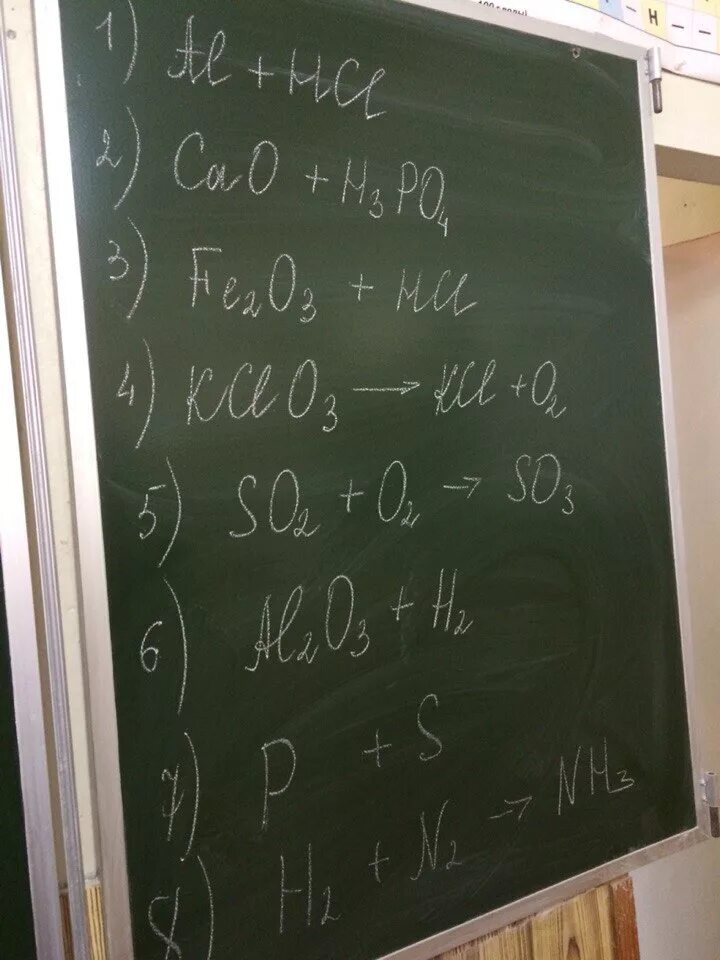 1) Al + HCl
2) CaO + H₃PO₄
3) Fe₂O₃ + HCl
4) KClO₃ → KCl + O₂
5) SO₂ + O₂ → SO₃
6) Al₂O₃ + H₂
7) P + S
8) H₂ + N₂ → NH₃
H